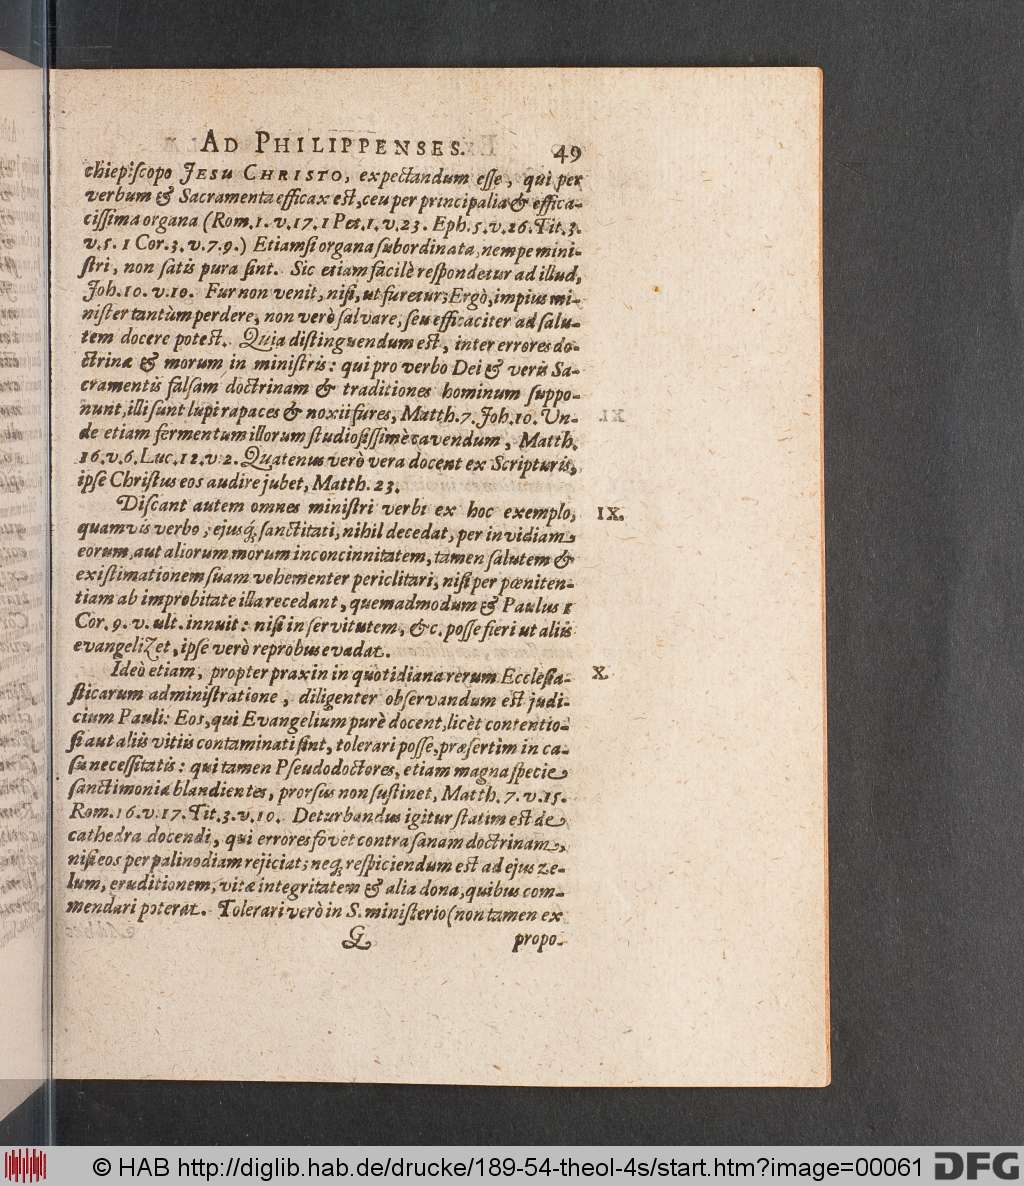 AD PHILIPPENSES. 49
chiepiscopo JESU CHRISTO, expectandum esse, qui per
verbum & Sacramenta efficax est, ceu per principalia & effica-
cissima organa (Rom. 1. v. 17. 1 Pet. 1. v. 23. Eph. 5. v. 26. Tit. 3.
v. 5. 1 Cor. 3. v. 7. 9.) Etiamsi organa subordinata, nempe mini-
stri, non satis pura sint. Sic etiam facilè respondetur ad illud,
Joh. 10. v. 10. Fur non venit, nisi, ut furetur; Ergò, impius mi-
nister tantùm perdere, non verò salvare, seu efficaciter ad salu-
tem docere potest. Quia distinguendum est, inter errores do-
ctrinæ & morum in ministris: qui pro verbo Dei & veris Sa-
cramentis falsam doctrinam & traditiones hominum suppo-
nunt, illi sunt lupi rapaces & noxii fures, Matth. 7. Joh. 10. Un-
de etiam fermentum illorum studiosissimè cavendum, Matth.
16. v. 6. Luc. 12. v. 2. Quatenus verò vera docent ex Scripturis,
ipse Christus eos audire jubet, Matth. 23.
Discant autem omnes ministri verbi ex hoc exemplo, IX.
quamvis verbo, ejusq; sanctitati, nihil decedat, per invidiam
eorum, aut aliorum morum inconcinnitatem, tamen salutem &
existimationem suam vehementer periclitari, nisi per pœniten-
tiam ab improbitate illa recedant, quemadmodum & Paulus 1
Cor. 9. v. ult. innuit: nisi in servitutem, &c. posse fieri ut aliis
evangelizet, ipse verò reprobus evadat.
Ideò etiam, propter praxin in quotidiana rerum Ecclesia- X.
sticarum administratione, diligenter observandum est judi-
cium Pauli: Eos, qui Evangelium purè docent, licèt contentio-
si aut aliis vitiis contaminati sint, tolerari posse, præsertim in ca-
su necessitatis: qui tamen Pseudodoctores, etiam magna specie
sanctimoniæ blandientes, prorsus non sustinet, Matth. 7. v. 15.
Rom. 16. v. 17. Tit. 3. v. 10. Deturbandus igitur statim est de
cathedra docendi, qui errores fovet contra sanam doctrinam,
nisi eos per palinodiam rejiciat; neq; respiciendum est ad ejus ze-
lum, eruditionem, vitæ integritatem & alia dona, quibus com-
mendari poterat. Tolerari verò in S. ministerio (non tamen ex
G propo-
© HAB http://diglib.hab.de/drucke/189-54-theol-4s/start.htm?image=00061 DFG